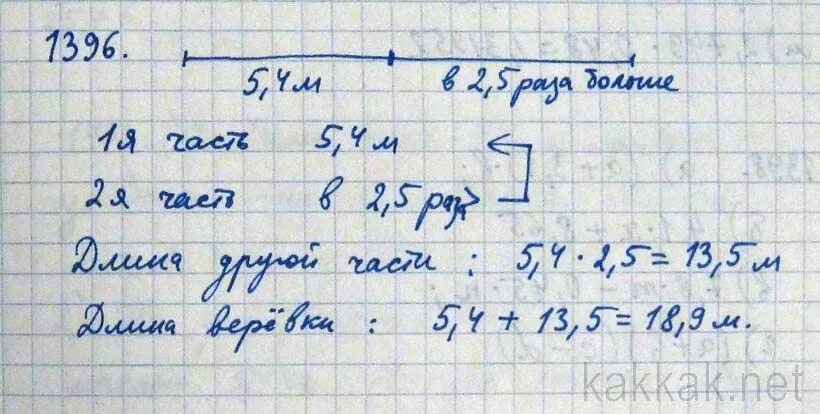 1396.
5,4м в 2,5 раза больше
1я часть 5,4м
2я часть в 2,5 раза>
Длина другой части : 5,4 · 2,5 = 13,5 м
Длина верёвки : 5,4 + 13,5 = 18,9 м.
kakkak.net